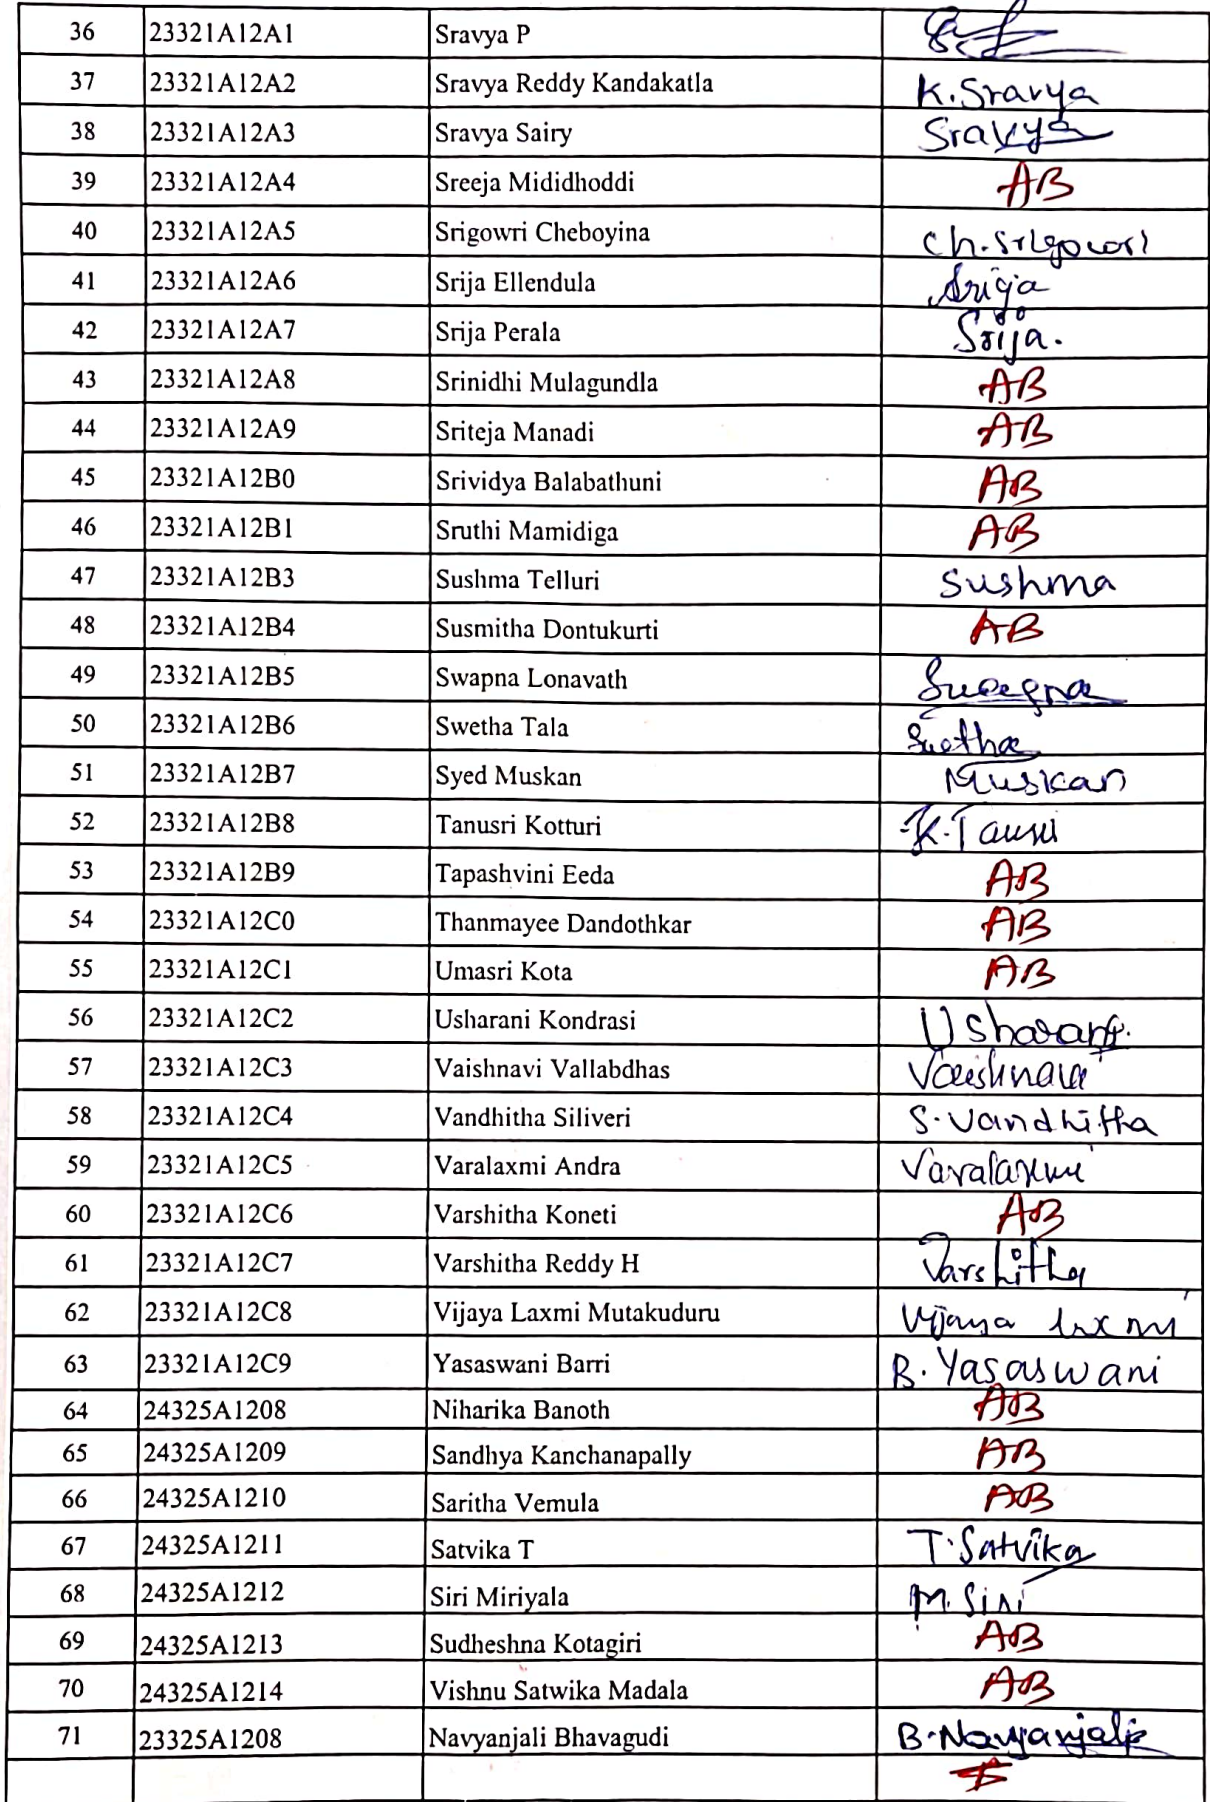 36 23321A12A1 Sravya P
37 23321A12A2 Sravya Reddy Kandakatla K.Sravya
38 23321A12A3 Sravya Sairy Sravya
39 23321A12A4 Sreeja Mididhoddi AB
40 23321A12A5 Srigowri Cheboyina Ch.Srigowri
41 23321A12A6 Srija Ellendula Srija
42 23321A12A7 Srija Perala Srija.
43 23321A12A8 Srinidhi Mulagundla AB
44 23321A12A9 Sriteja Manadi AB
45 23321A12B0 Srividya Balabathuni AB
46 23321A12B1 Sruthi Mamidiga AB
47 23321A12B3 Sushma Telluri Sushma
48 23321A12B4 Susmitha Dontukurti AB
49 23321A12B5 Swapna Lonavath
50 23321A12B6 Swetha Tala Swetha
51 23321A12B7 Syed Muskan Muskan
52 23321A12B8 Tanusri Kotturi
53 23321A12B9 Tapashvini Eeda AB
54 23321A12C0 Thanmayee Dandothkar AB
55 23321A12C1 Umasri Kota AB
56 23321A12C2 Usharani Kondrasi Usharani.
57 23321A12C3 Vaishnavi Vallabdhas Vaishnavi
58 23321A12C4 Vandhitha Siliveri S.Vandhitha
59 23321A12C5 Varalaxmi Andra Varalaxmi
60 23321A12C6 Varshitha Koneti AB
61 23321A12C7 Varshitha Reddy H Varshitha
62 23321A12C8 Vijaya Laxmi Mutakuduru Vijaya laxmi
63 23321A12C9 Yasaswani Barri B.Yasaswani
64 24325A1208 Niharika Banoth AB
65 24325A1209 Sandhya Kanchanapally AB
66 24325A1210 Saritha Vemula AB
67 24325A1211 Satvika T T.Satvika
68 24325A1212 Siri Miriyala M.Siri
69 24325A1213 Sudheshna Kotagiri AB
70 24325A1214 Vishnu Satwika Madala AB
71 23325A1208 Navyanjali Bhavagudi B.Navyanjali